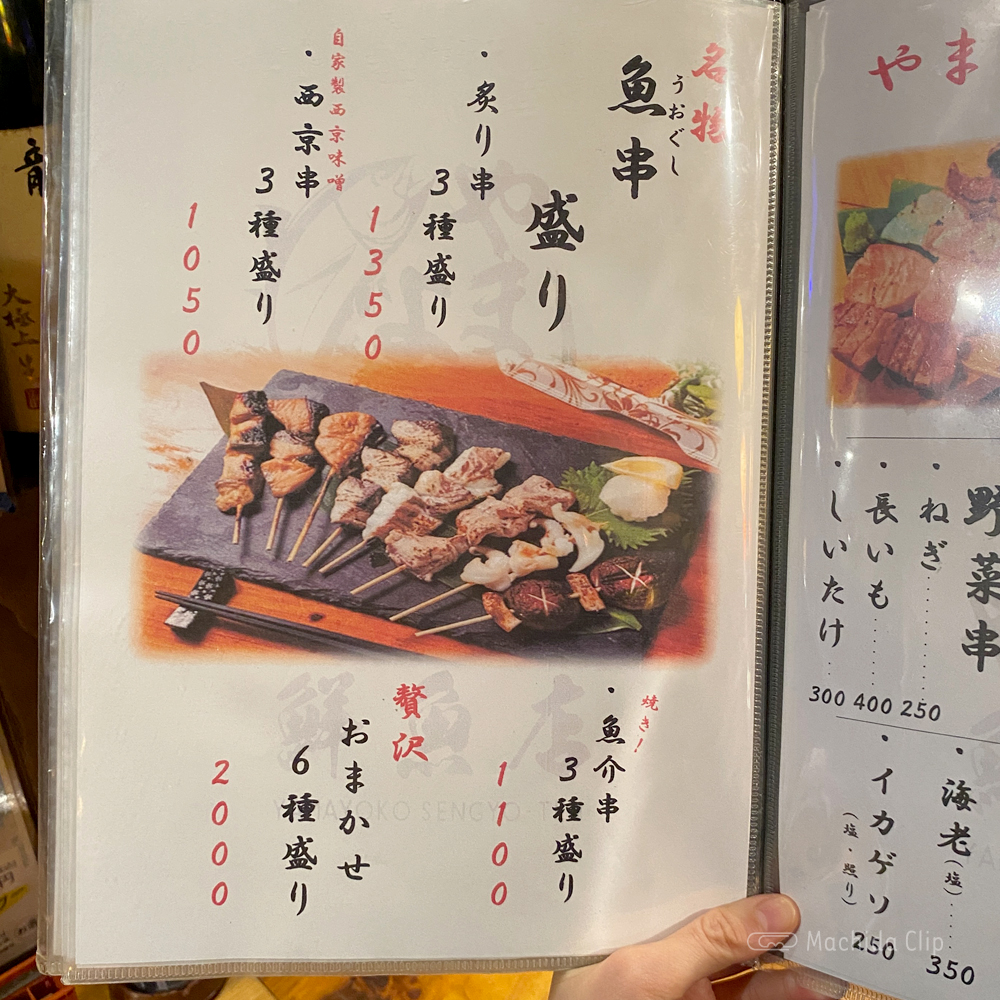 名物
うおぐし
魚串
盛り
・炙り串
3種盛り
1350
自家製西京味噌
・西京串
3種盛り
1050
焼き!
・魚介串
3種盛り
1100
贅沢
おまかせ
6種盛り
2000
鮮魚店
やま
野菜串
・ねぎ……250
・長いも……400
・しいたけ…300
・海老(塩)……350
・イカゲソ
(塩・照り)
250
大極上
Machida Clip